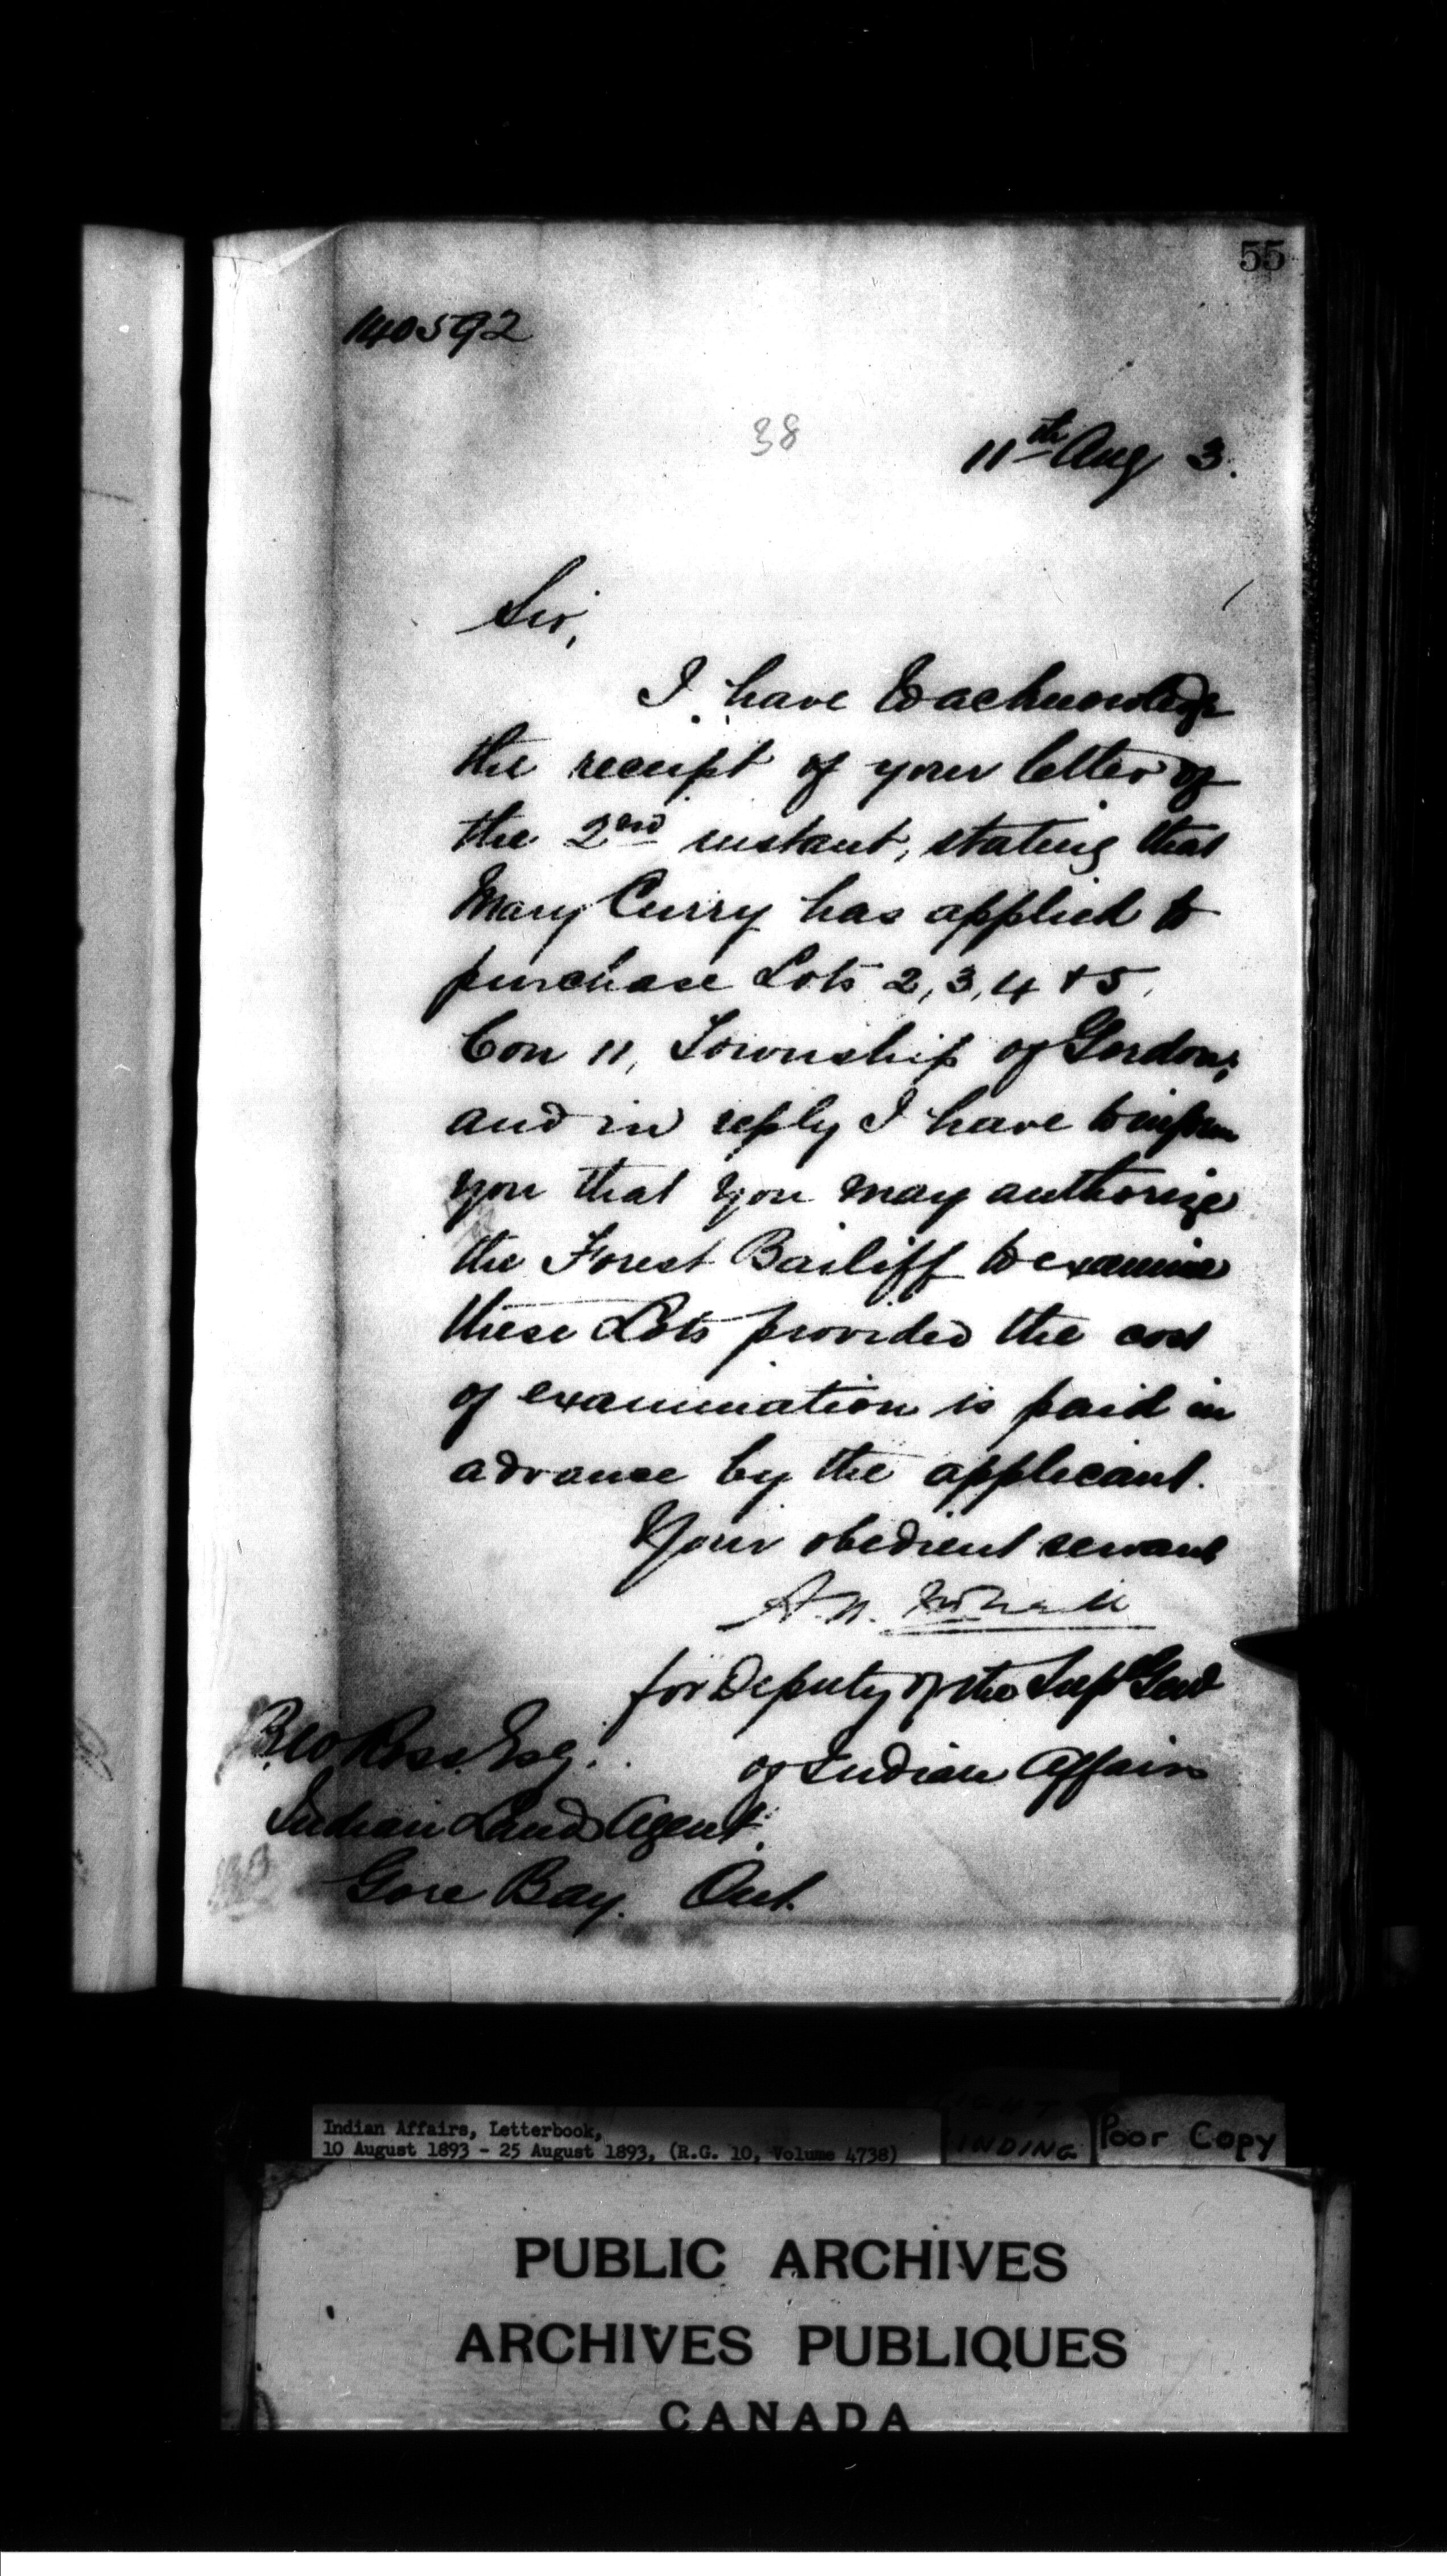 55
140592
38
11th Aug 3.
Sir,
I have to acknowledge
the receipt of your letter of
the 2nd instant, stating that
Mary Curry has applied to
purchase Lots 2, 3, 4 & 5,
Con 11, Township of Gordon;
and in reply I have to inform
you that you may authorize
the Forest Bailiff to examine
these Lots provided the cost
of examination is paid in
advance by the applicant.
Your obedient servant
A. N.
for Deputy of the Supt Genl
of Indian Affairs
B. W. Ross. Esq.
Indian Land Agent.
Gore Bay. Ont.
Indian Affairs, Letterbook,
10 August 1893 - 25 August 1893, (R.G. 10, Volume 4738)
INDING
Poor Copy
PUBLIC ARCHIVES
ARCHIVES PUBLIQUES
CANADA